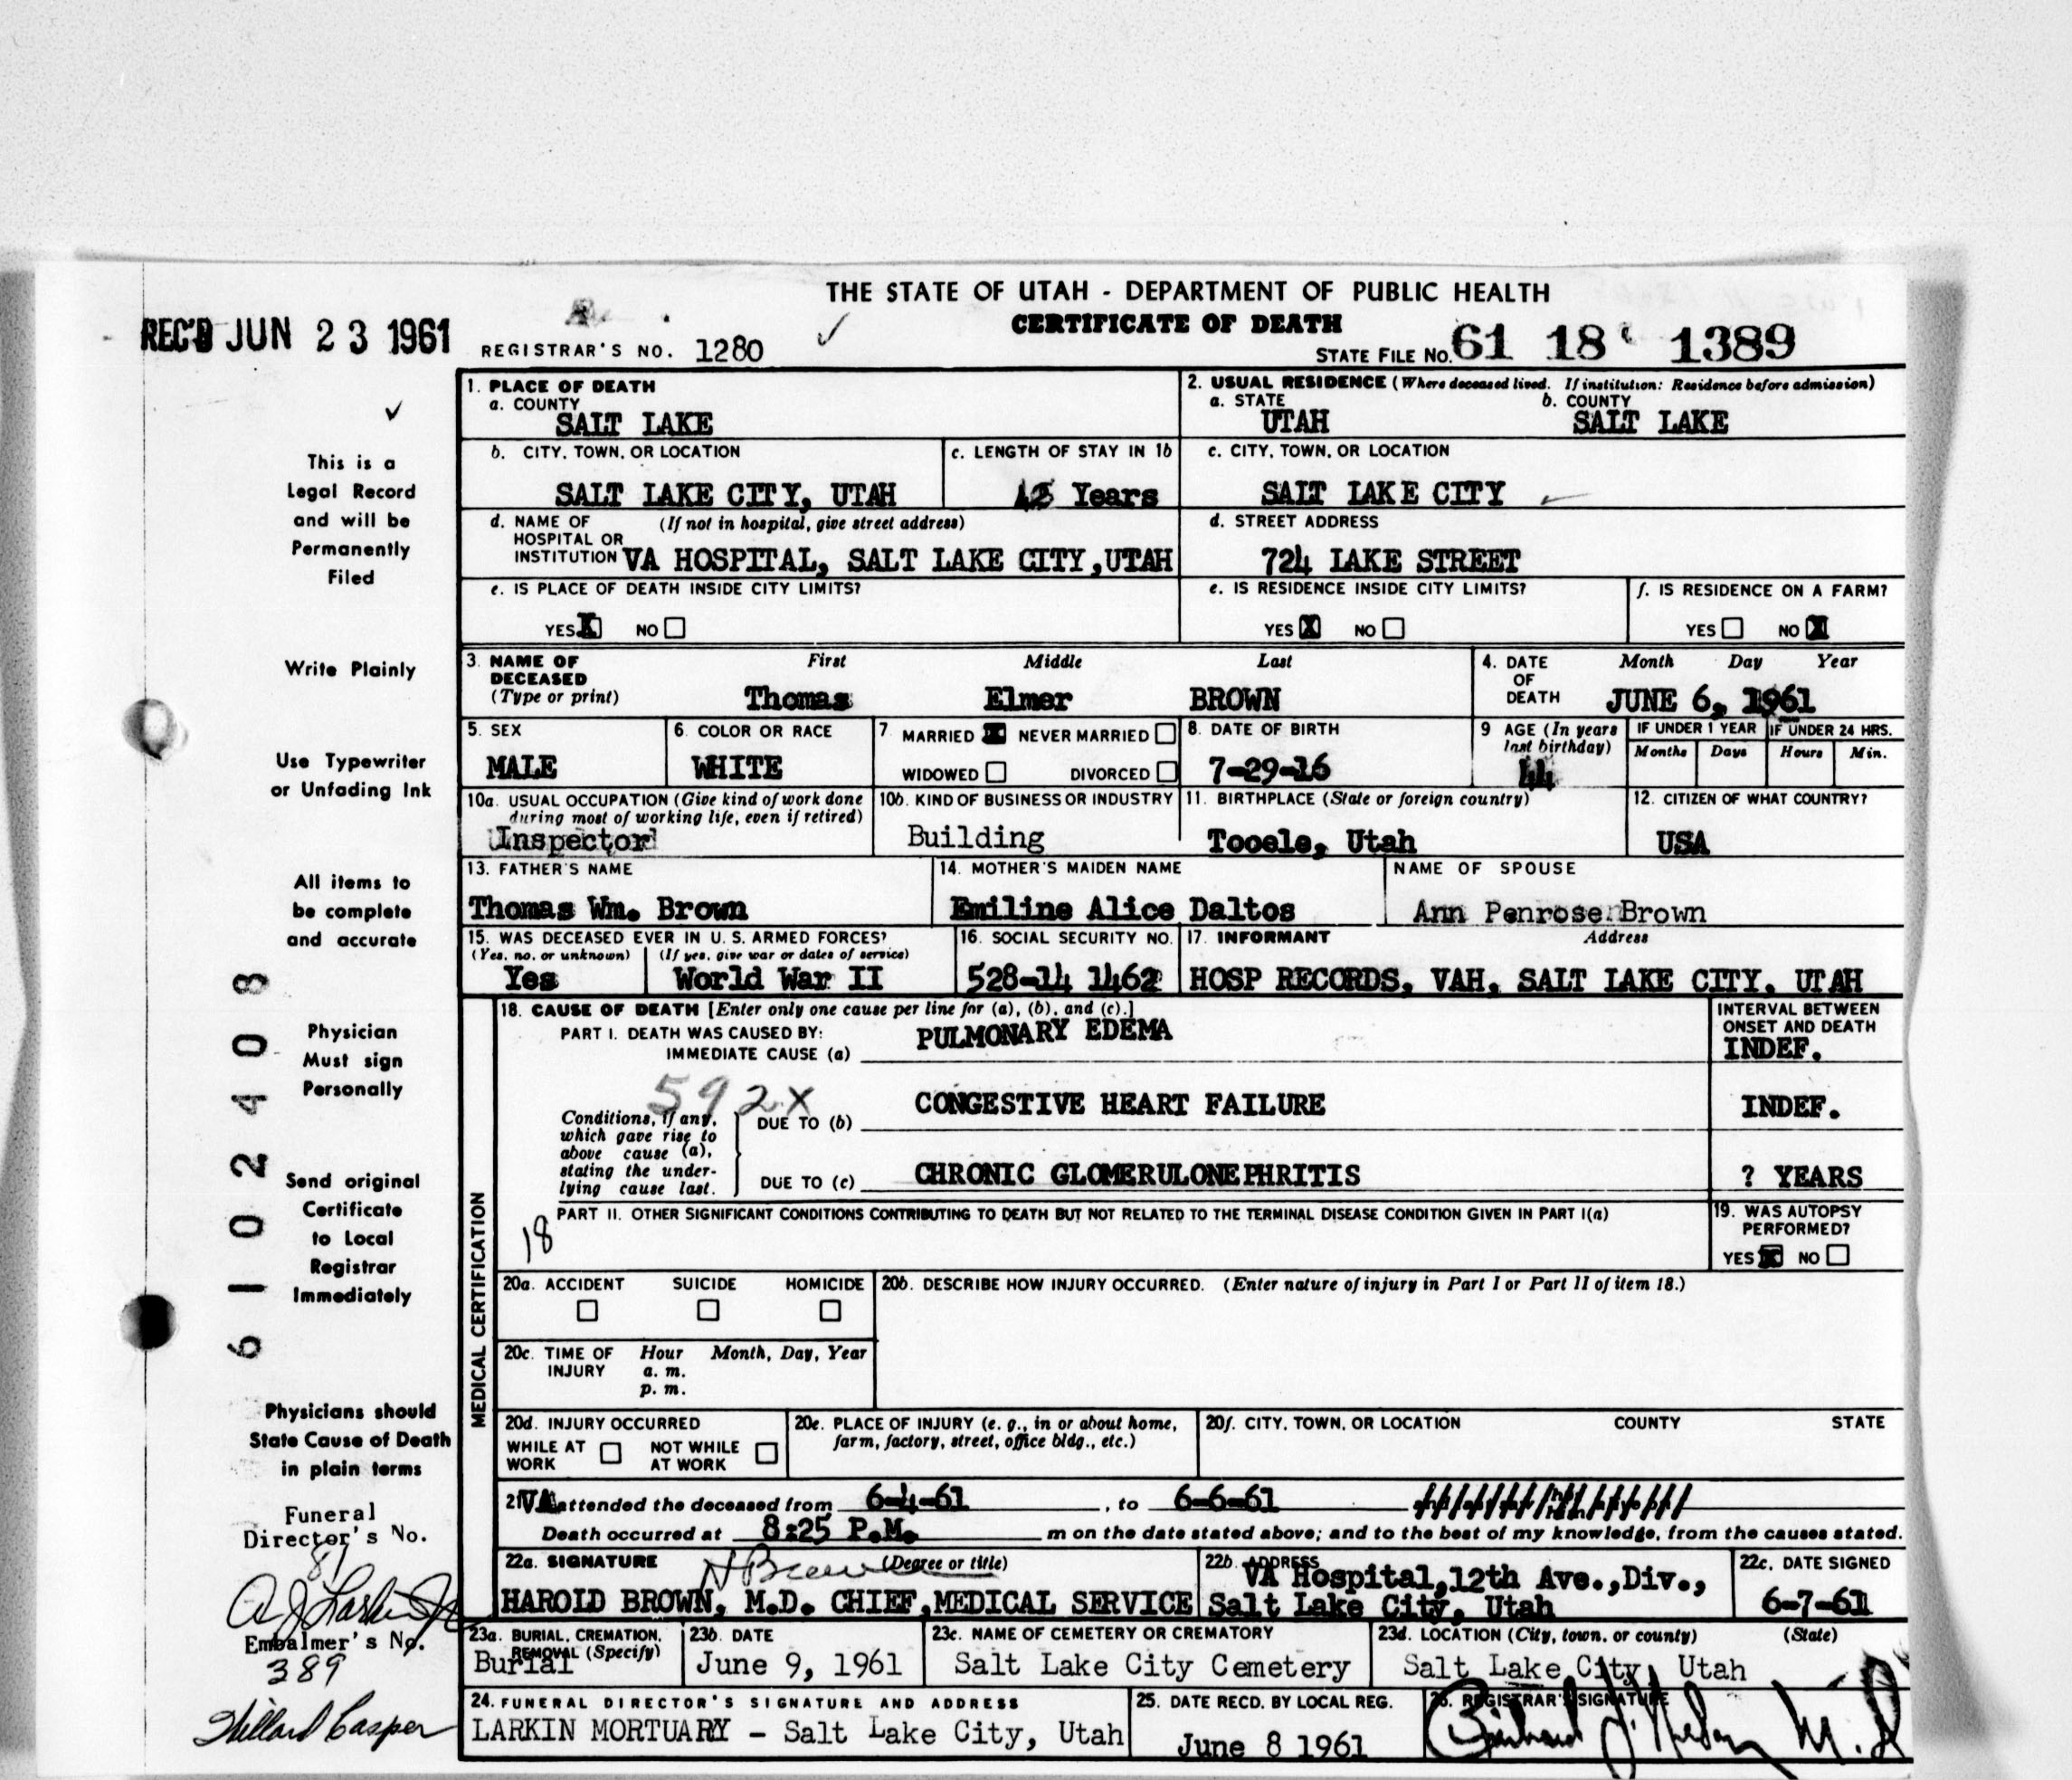 THE STATE OF UTAH - DEPARTMENT OF PUBLIC HEALTH
CERTIFICATE OF DEATH
REC'D JUN 23 1961
REGISTRAR'S NO. 1280
STATE FILE NO. 61 18 1389
This is a
Legal Record
and will be
Permanently
Filed
Write Plainly
Use Typewriter
or Unfading Ink
All items to
be complete
and accurate
Physician
Must sign
Personally
Send original
Certificate
to Local
Registrar
Immediately
Physicians should
State Cause of Death
in plain terms
Funeral
Director's No.
81
Embalmer's No.
389
Willard Casper
6102408
1. PLACE OF DEATH
a. COUNTY
SALT LAKE
2. USUAL RESIDENCE (Where deceased lived. If institution: Residence before admission)
a. STATE b. COUNTY
UTAH SALT LAKE
b. CITY, TOWN, OR LOCATION
SALT LAKE CITY, UTAH
c. LENGTH OF STAY IN 1b
Years
c. CITY, TOWN, OR LOCATION
SALT LAKE CITY
d. NAME OF (If not in hospital, give street address)
HOSPITAL OR
INSTITUTION VA HOSPITAL, SALT LAKE CITY,UTAH
d. STREET ADDRESS
724 LAKE STREET
e. IS PLACE OF DEATH INSIDE CITY LIMITS?
YES X NO
e. IS RESIDENCE INSIDE CITY LIMITS?
YES X NO
f. IS RESIDENCE ON A FARM?
YES NO X
3. NAME OF First Middle Last
DECEASED
(Type or print) Thomas Elmer BROWN
4. DATE Month Day Year
OF
DEATH JUNE 6, 1961
5. SEX
MALE
6. COLOR OR RACE
WHITE
7. MARRIED X NEVER MARRIED
WIDOWED DIVORCED
8. DATE OF BIRTH
7-29-16
9 AGE (In years
last birthday)
44
IF UNDER 1 YEAR IF UNDER 24 HRS.
Months Days Hours Min.
10a. USUAL OCCUPATION (Give kind of work done
during most of working life, even if retired)
Inspector
10b. KIND OF BUSINESS OR INDUSTRY
Building
11. BIRTHPLACE (State or foreign country)
Tooele, Utah
12. CITIZEN OF WHAT COUNTRY?
USA
13. FATHER'S NAME
Thomas Wm. Brown
14. MOTHER'S MAIDEN NAME
Emiline Alice Daltos
NAME OF SPOUSE
Ann Penrose Brown
15. WAS DECEASED EVER IN U. S. ARMED FORCES?
(Yes, no, or unknown) (If yes, give war or dates of service)
Yes World War II
16. SOCIAL SECURITY NO.
528-14 1462
17. INFORMANT Address
HOSP RECORDS, VAH, SALT LAKE CITY, UTAH
MEDICAL CERTIFICATION
18. CAUSE OF DEATH [Enter only one cause per line for (a), (b), and (c).]
PART I. DEATH WAS CAUSED BY:
IMMEDIATE CAUSE (a) PULMONARY EDEMA
INTERVAL BETWEEN
ONSET AND DEATH
INDEF.
592X
Conditions, if any,
which gave rise to
above cause (a),
stating the under-
lying cause last.
DUE TO (b) CONGESTIVE HEART FAILURE INDEF.
DUE TO (c) CHRONIC GLOMERULONEPHRITIS ? YEARS
PART II. OTHER SIGNIFICANT CONDITIONS CONTRIBUTING TO DEATH BUT NOT RELATED TO THE TERMINAL DISEASE CONDITION GIVEN IN PART I(a)
18
19. WAS AUTOPSY
PERFORMED?
YES X NO
20a. ACCIDENT SUICIDE HOMICIDE
20b. DESCRIBE HOW INJURY OCCURRED. (Enter nature of injury in Part I or Part II of item 18.)
20c. TIME OF Hour Month, Day, Year
INJURY a. m.
p. m.
20d. INJURY OCCURRED
WHILE AT WORK NOT WHILE AT WORK
20e. PLACE OF INJURY (e. g., in or about home,
farm, factory, street, office bldg., etc.)
20f. CITY, TOWN, OR LOCATION COUNTY STATE
21 VA attended the deceased from 6-4-61, to 6-6-61
Death occurred at 8:25 P.M. m on the date stated above; and to the best of my knowledge, from the causes stated.
22a. SIGNATURE H Brown (Degree or title)
HAROLD BROWN, M.D. CHIEF,MEDICAL SERVICE
22b. ADDRESS
VA Hospital,12th Ave.,Div.,
Salt Lake City, Utah
22c. DATE SIGNED
6-7-61
23a. BURIAL, CREMATION,
REMOVAL (Specify)
Burial
23b. DATE
June 9, 1961
23c. NAME OF CEMETERY OR CREMATORY
Salt Lake City Cemetery
23d. LOCATION (City, town, or county) (State)
Salt Lake City, Utah
24. FUNERAL DIRECTOR'S SIGNATURE AND ADDRESS
LARKIN MORTUARY - Salt Lake City, Utah
25. DATE RECD. BY LOCAL REG.
June 8 1961
26. REGISTRAR'S SIGNATURE